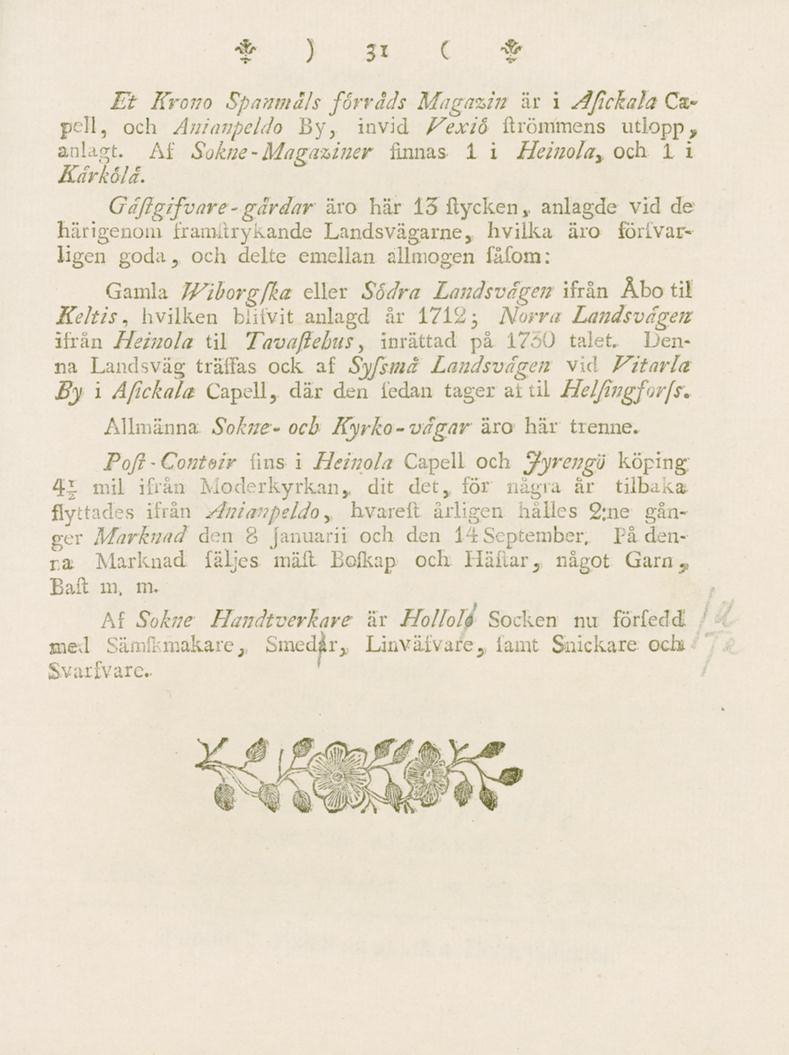 ) 31 (
Et Krono Spanmåls förråds Magazin är i Aſickala Ca-
pell, och Anianpeldo By, invid Vexiö ſtrömmens utlopp,
anlagt. Af Sokne-Magaziner finnas 1 i Heinola, och 1 i
Kärkölä.
Gäſtgifvare-gårdar äro här 13 ſtycken, anlagde vid de
härigenom framſtrykande Landsvägarne, hvilka äro förſvar-
ligen goda, och delte emellan allmogen ſåſom:
Gamla Wiborgſka eller Södra Landsvägen ifrån Åbo til
Keltis, hvilken blifvit anlagd år 1712; Norra Landsvägen
ifrån Heinola til Tavaſtehus, inrättad på 1730 talet. Den-
na Landsväg träffas ock af Syſsmä Landsvägen vid Vitarla
By i Aſickala Capell, där den ſedan tager af til Helſingforſs.
Allmänna Sokne- och Kyrko-vägar äro här trenne.
Poſt-Contoir fins i Heinola Capell och Jyrengö köping
4½ mil ifrån Moderkyrkan, dit det, för några år tilbaka
flyttades ifrån Anianpeldo, hvareſt årligen hålles 2:ne gån-
ger Marknad den 8 Januarii och den 14 September. På den-
na Marknad ſäljes mäſt Boſkap och Häſtar, något Garn,
Baſt m. m.
Af Sokne Handtverkare är Hollola Socken nu förſedd
med Sämſkmakare, Smedar, Linväfvare, ſamt Snickare och
Svarfvare.